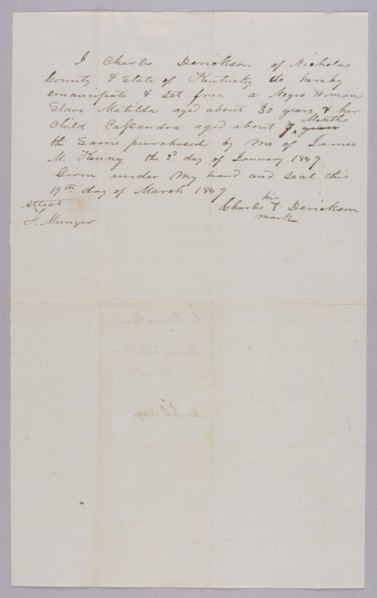 I Charles Derickson of Nicholas
County & State of Kentucky do hereby
emancipate & set free a Negro Woman
Slave Matilda aged about 30 years & her
Child Cassandra aged about 7 years Months
the Same purchased by me of James
M. Kenny th 2d day of January 1849
Given under my hand and seal this
19th day of March 1849
Attest
J. Munger
his
Charles X Derickson
mark